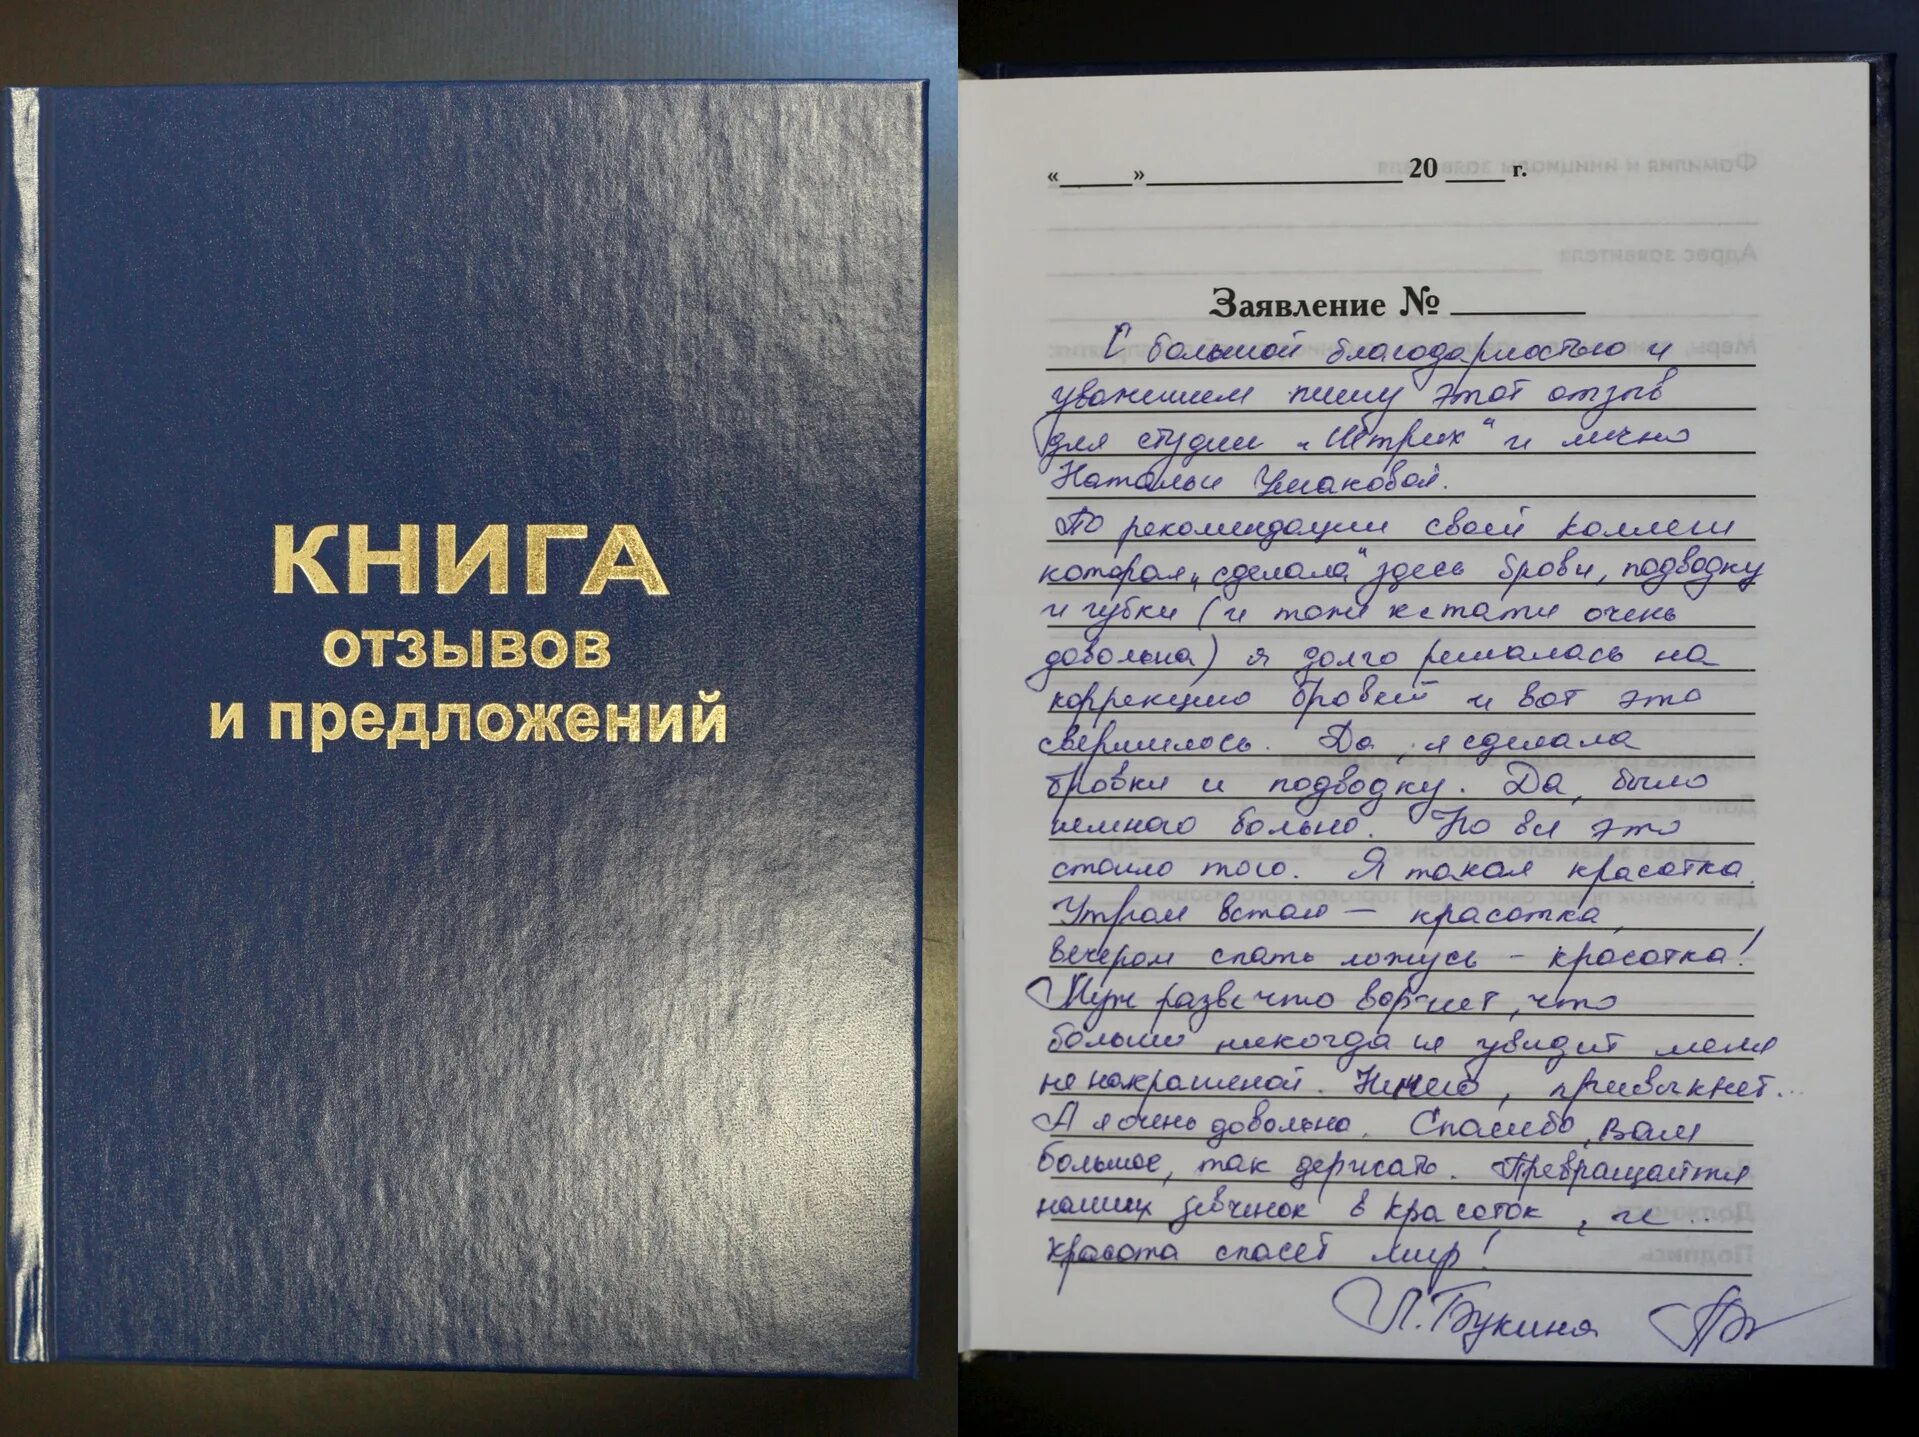 КНИГА
ОТЗЫВОВ
И ПРЕДЛОЖЕНИЙ
«_____»__________________ 20 ____ г.
Заявление № _________
С большой благодарностью и
уважением пишу этот отзыв
для студии „Штрих" и лично
Натальи Ушаковой.
По рекомендации своей коллеги
которая „сделала" здесь брови, подводку
и губки (и тоже кстати очень
довольна) я долго решалась на
коррекцию бровей и вот это
свершилось. Да, я сделала
бровки и подводку. Да, было
немного больно. Но всё это
стоило того. Я такая красотка.
Утром встаю – красотка,
вечером спать ложусь – красотка!
Муж разве что ворчит, что
больше никогда не увидит меня
не накрашеной. Ничего, привыкнет...
А я очень довольна. Спасибо, Вам
большое, так держать. Превращайте
наших девчонок в красоток, и...
красота спасёт мир!
Л. Букина